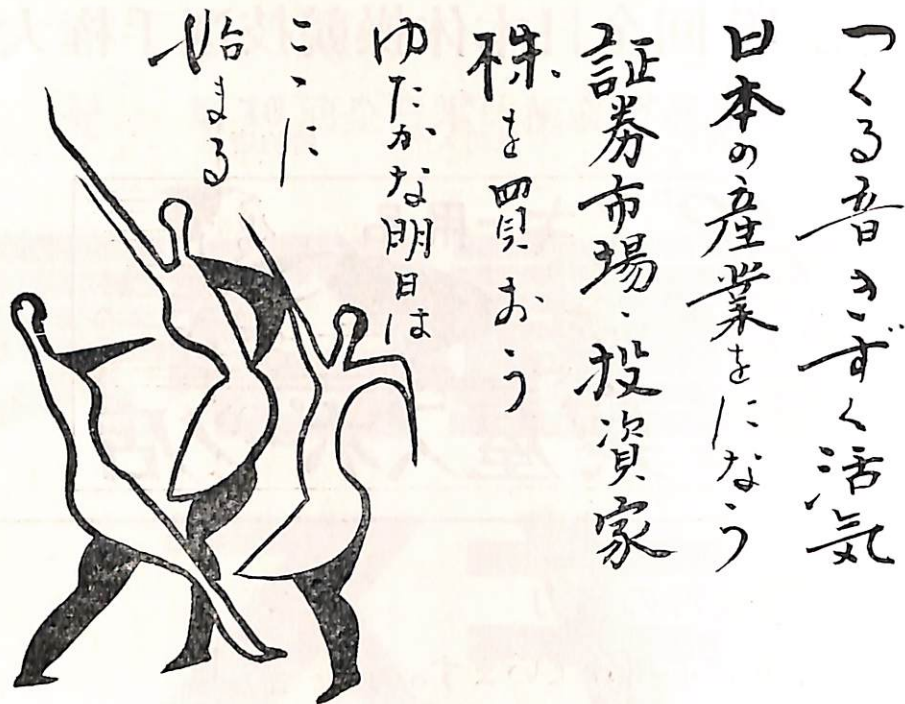 つくる音きずく活気
日本の産業をになう
証券市場・投資家
株を買おう
ゆたかな明日は
こゝに
始まる